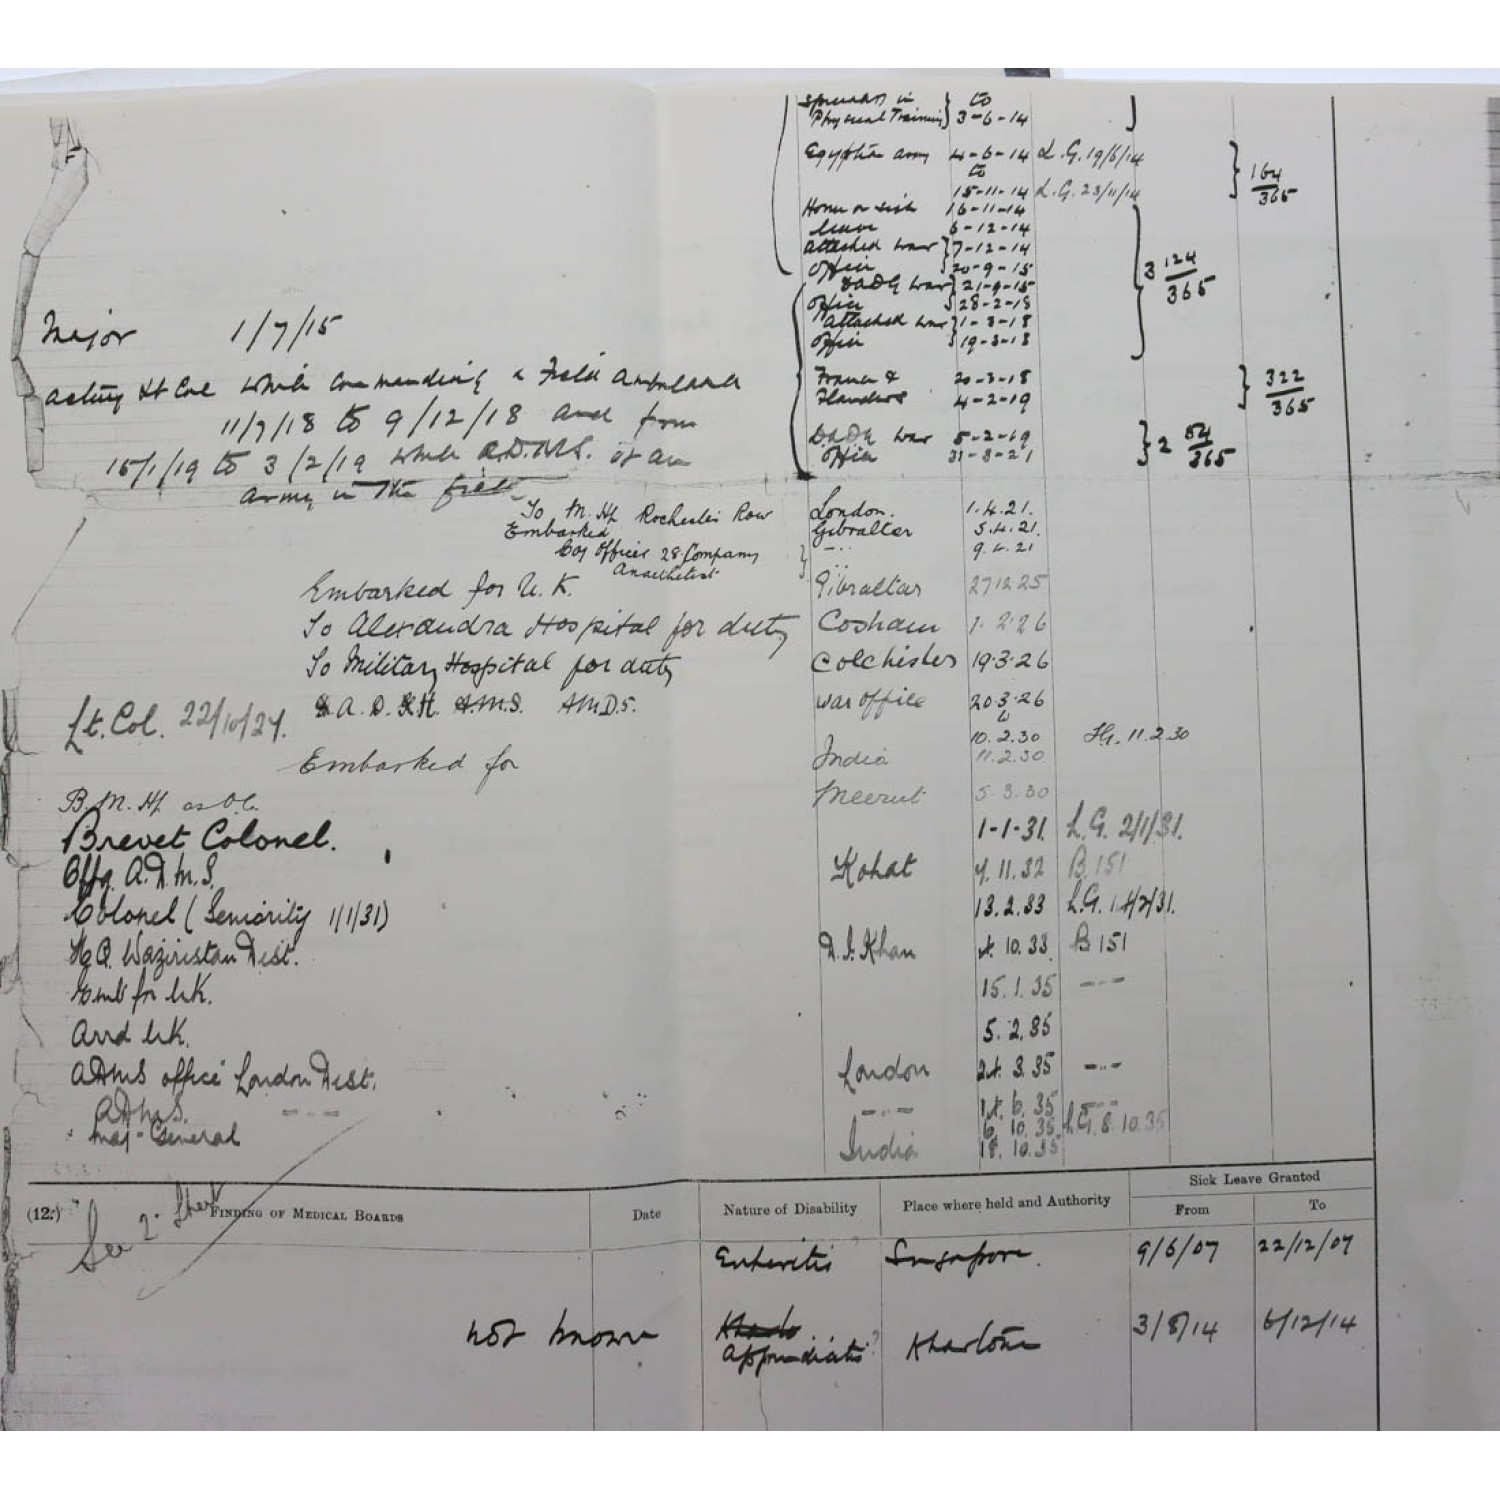 Specialist in } to
Physical Training } 3-6-14
Egyptian army 4-6-14 L.G. 19/6/14
to
15-11-14 L.G. 23/11/14
} 164/365
Home on sick 16-11-14
leave 6-12-14
attached War } 7-12-14
Office } 20-9-15
DADG War } 21-9-15
Office } 28-2-18
attached War } 1-3-18
Office } 19-3-18
} 3 124/365
Major 1/7/15
France & 20-3-18
Flanders 4-2-19
} 322/365
Acting Lt Col while Commanding a Field Ambulance
11/7/18 to 9/12/18 and from
DADG War 5-2-19
Office 31-3-21
} 2 54/365
15/1/19 to 3/2/19 while A.D.M.S. of an
army in the field
To M. Hp Rochester Row London. 1.4.21.
Embarked Gibraltar 5.4.21.
Coy Officer 28 Company -..- 9.4.21
Anaesthetist -..-
Embarked for U.K. Gibraltar 27.12.25
To Alexandra Hospital for duty Cosham 1.2.26
To Military Hospital for duty Colchester 19.3.26
Lt. Col. 22/10/27. D.A.D. H. A.M.S. A.M.D.5. War Office 20.3.26
to
10.2.30 11.2.30
Embarked for India 11.2.30
B.M. Hp as O.C. Meerut 5.3.30
Brevet Colonel. 1-1-31. L.G. 2/1/31.
Offg. A.D.M.S. Kohat 7.11.32 B 151
Colonel (Seniority 1/1/31) 13.2.33 L.G.
HQ. Waziristan Dist. D.I. Khan 4.10.33. B 151
Emb for UK. 15.1.35 -..-
Arrd UK. 5.2.35
ADMS office London Dist. London 24.3.35 -..-
ADMS. -..- -..- 14.6.35 -..-
Maj-General 6.10.35 L.G. 8.10.35
India 18.10.35
See 2nd Sheet
(12.) FINDING OF MEDICAL BOARDS Date Nature of Disability Place where held and Authority Sick Leave Granted
From To
Enteritis Singapore. 9/6/07 22/12/07
not known Appendicitis? Khartoum 3/8/14 6/12/14